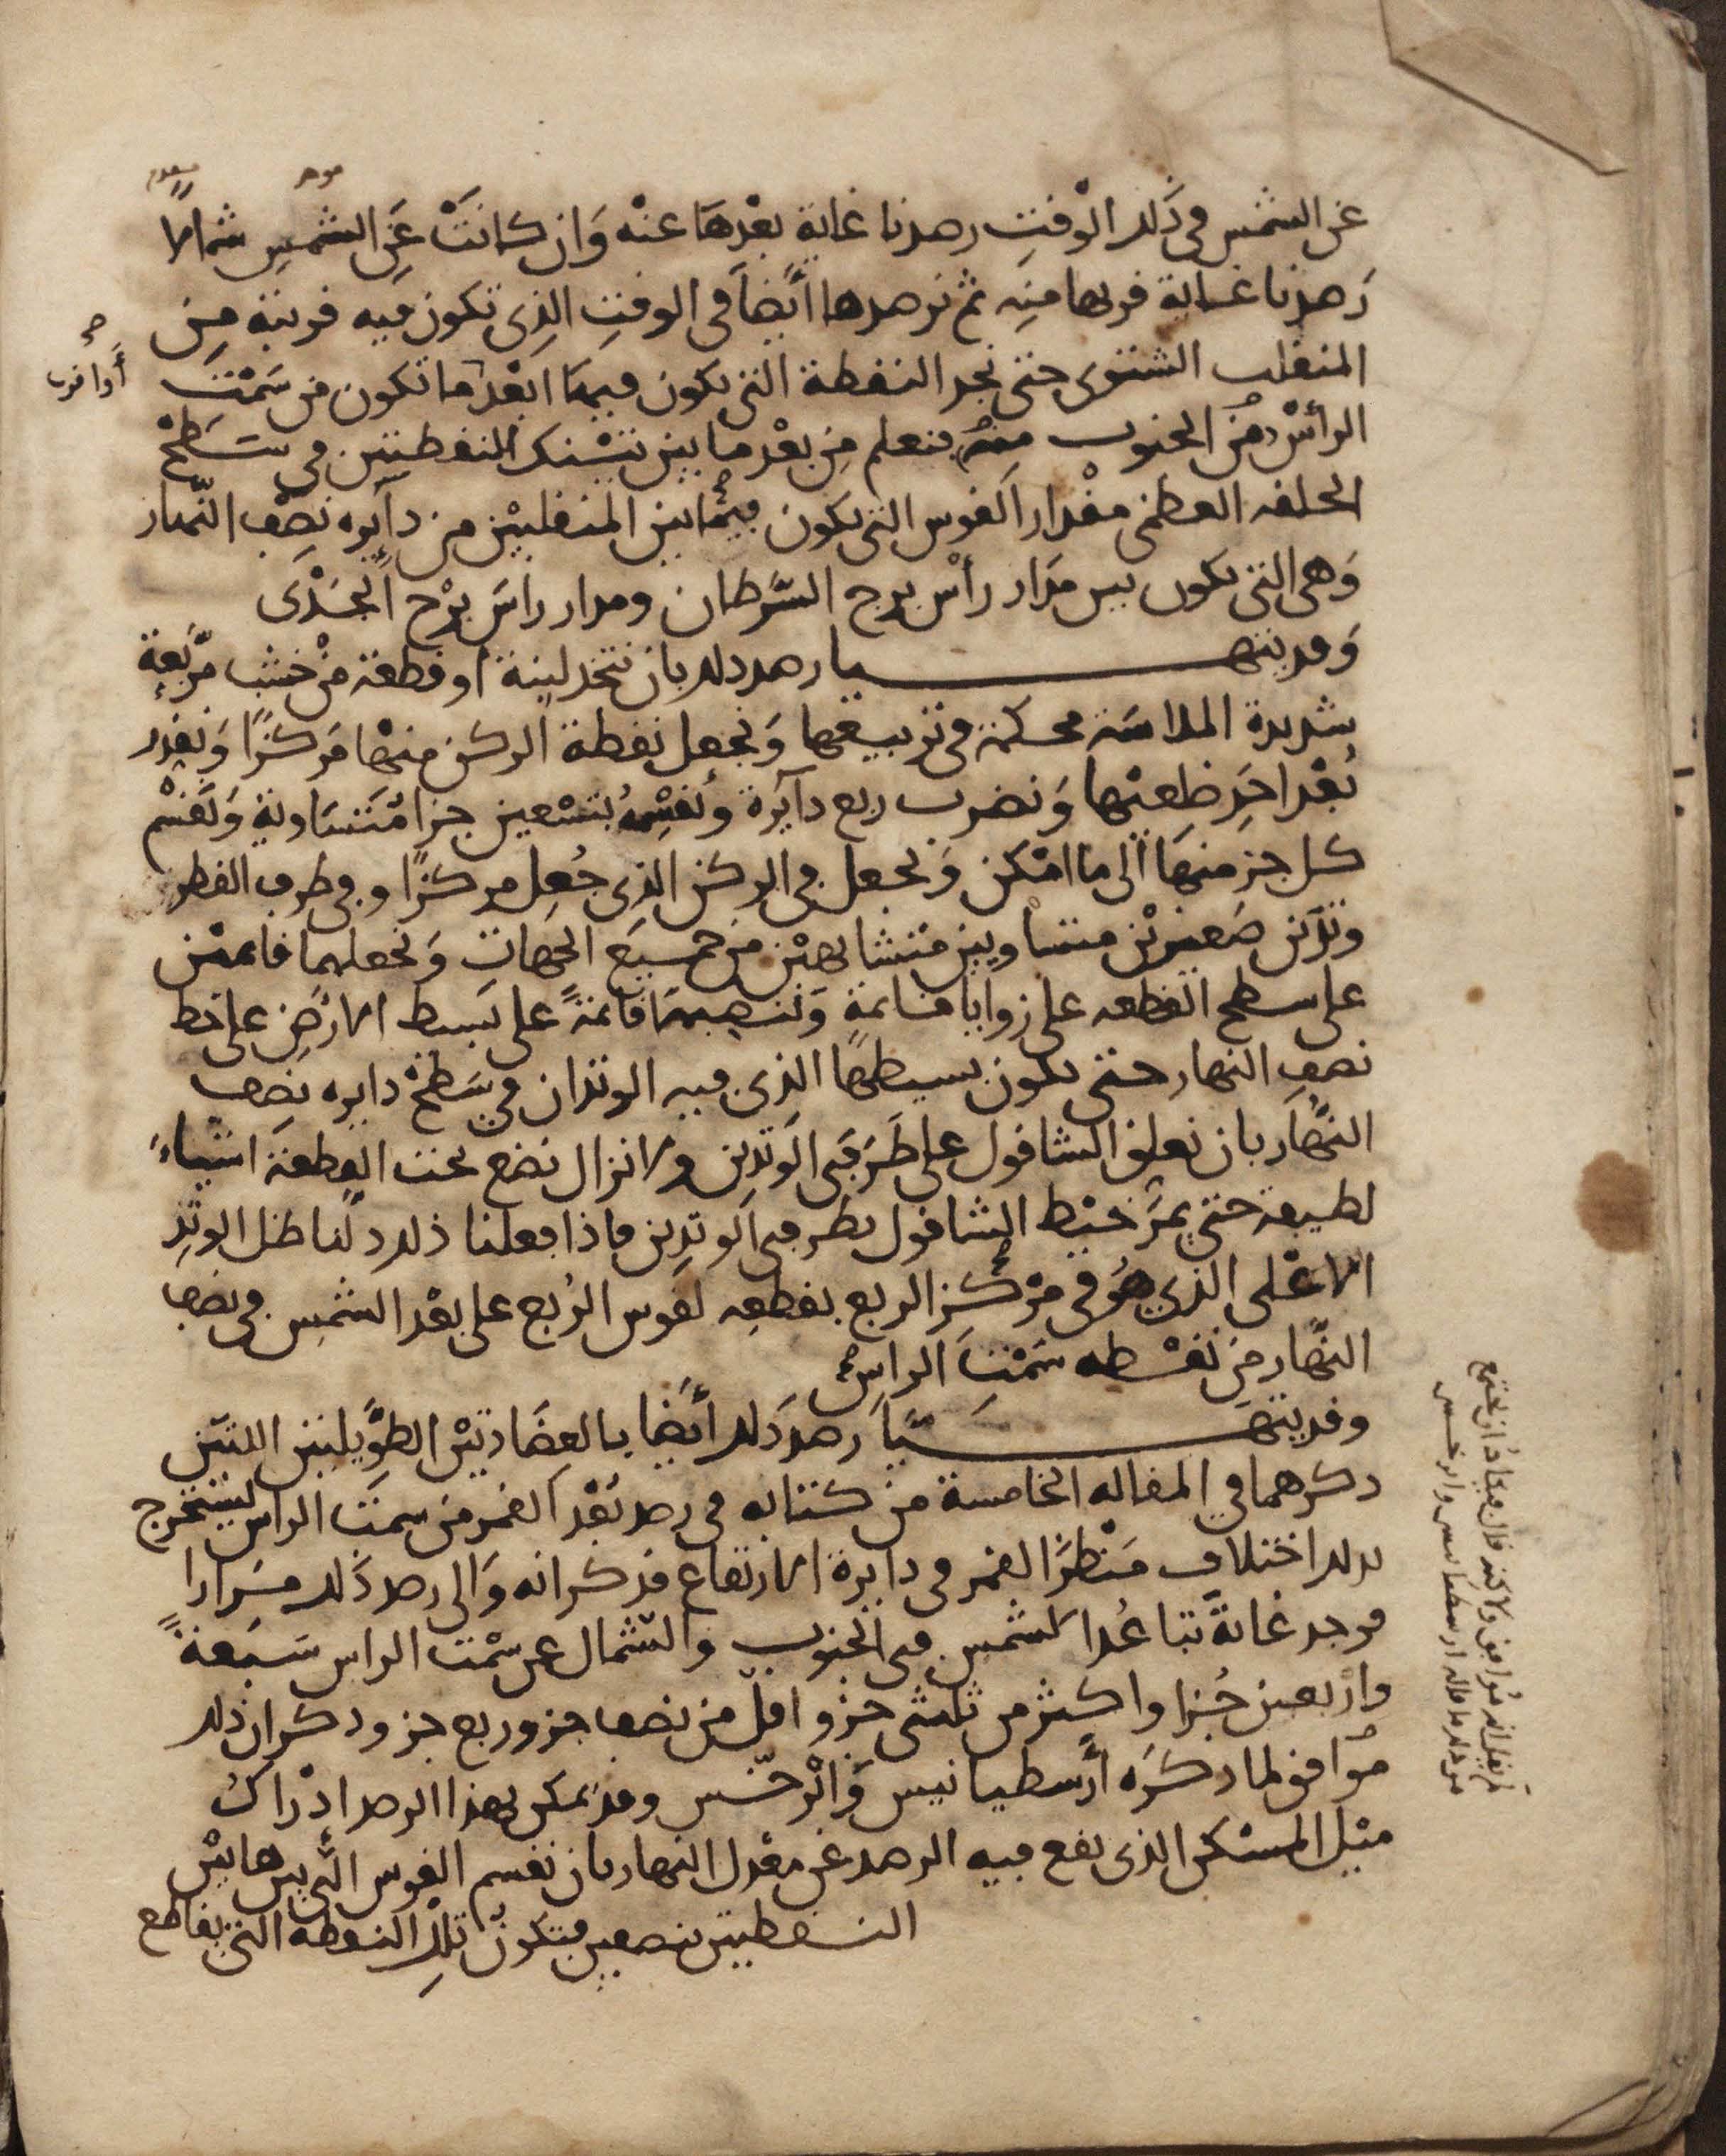 موخر
مقدم
عن الشمس فى ذلك الوقت رصدنا غاية بعدها عنه وان كانت عن الشمس شمالا
رصدنا غاية قربها منه ثم نرصدها أيضا فى الوقت الذى تكون فيه قريبة من
المنقلب الشتوى حتى نجد النقطة التى تكون فيها ابعد ما تكون من سمت
أو اقرب
الرأس من الجنوب منه فنعلم من بعد ما بين تينك النقطتين فى سطح
الحلقه العظمى مقدار القوس التى تكون فيما بين المنقلبين من دايره نصف النهار
وهى التى تكون بين مدار رأس برج السرطان ومدار راس برج الجدى
وقد يتهيا رصد ذلك بان نتخذ لبنة او قطعة من خشب مربعة
شديدة الملاسة محكمة فى تربيعها ونجعل نقطة الركن منها مركزا وبقدر
بعد احد ضلعيها ونضرب ربع دآيرة ونقسمه بتسعين جزا متساوية ونقسم
كل جز منها الى ما امكن ونجعل فى الركن الذى جعل مركزا وفى طرف القطر
وتدين صغيرين متساويين متشابهين من جميع الجهات ونجعلهما قائمين
على سطح القطعه على زوايا قائمة وننصبها قائمة على بسط الارض على خط
نصف النهار حتى يكون بسيطها الذى فيه الوتدان فى سطح دايره نصف
النهار بان نعلق الشاقول على طرفى الوتدين ولا نزال نضع تحت القطعة اشياء
لطيفة حتى يمر خيط الشاقول بطرفى الوتدين فاذا فعلنا ذلك دلنا ظل الوتد
الاعلى الذى هو فى مركز الربع بقطعه لقوس الربع على بعد الشمس فى نصف
النهار من نقطه سمت الراس
وقد يتهيا رصد ذلك أيضا بالعضادتين الطويلتين اللتين
ذكرهما فى المقاله الخامسة من كتابه فى رصد بعد القمر من سمت الراس ليستخرج
بذلك اختلاف منظر القمر فى دايرة الارتفاع فذكر انه والى رصد ذلك مرارا
فوجد غاية تباعد الشمس فى الجنوب والشمال عن سمت الراس سبعة
واربعين جزا واكثر من ثلثى جز واقل من نصف جز وربع جز وذكر ان ذلك
موافق لما ذكره أرسطيانيس وابرخس وقد يمكن بهذا الرصد ادراك
ميل المسكن الذى يقع فيه الرصد عن معدل النهار بان نقسم القوس التى بين هاتين
النقطتين بنصفين فتكون تلك النقطه التى يقاطع